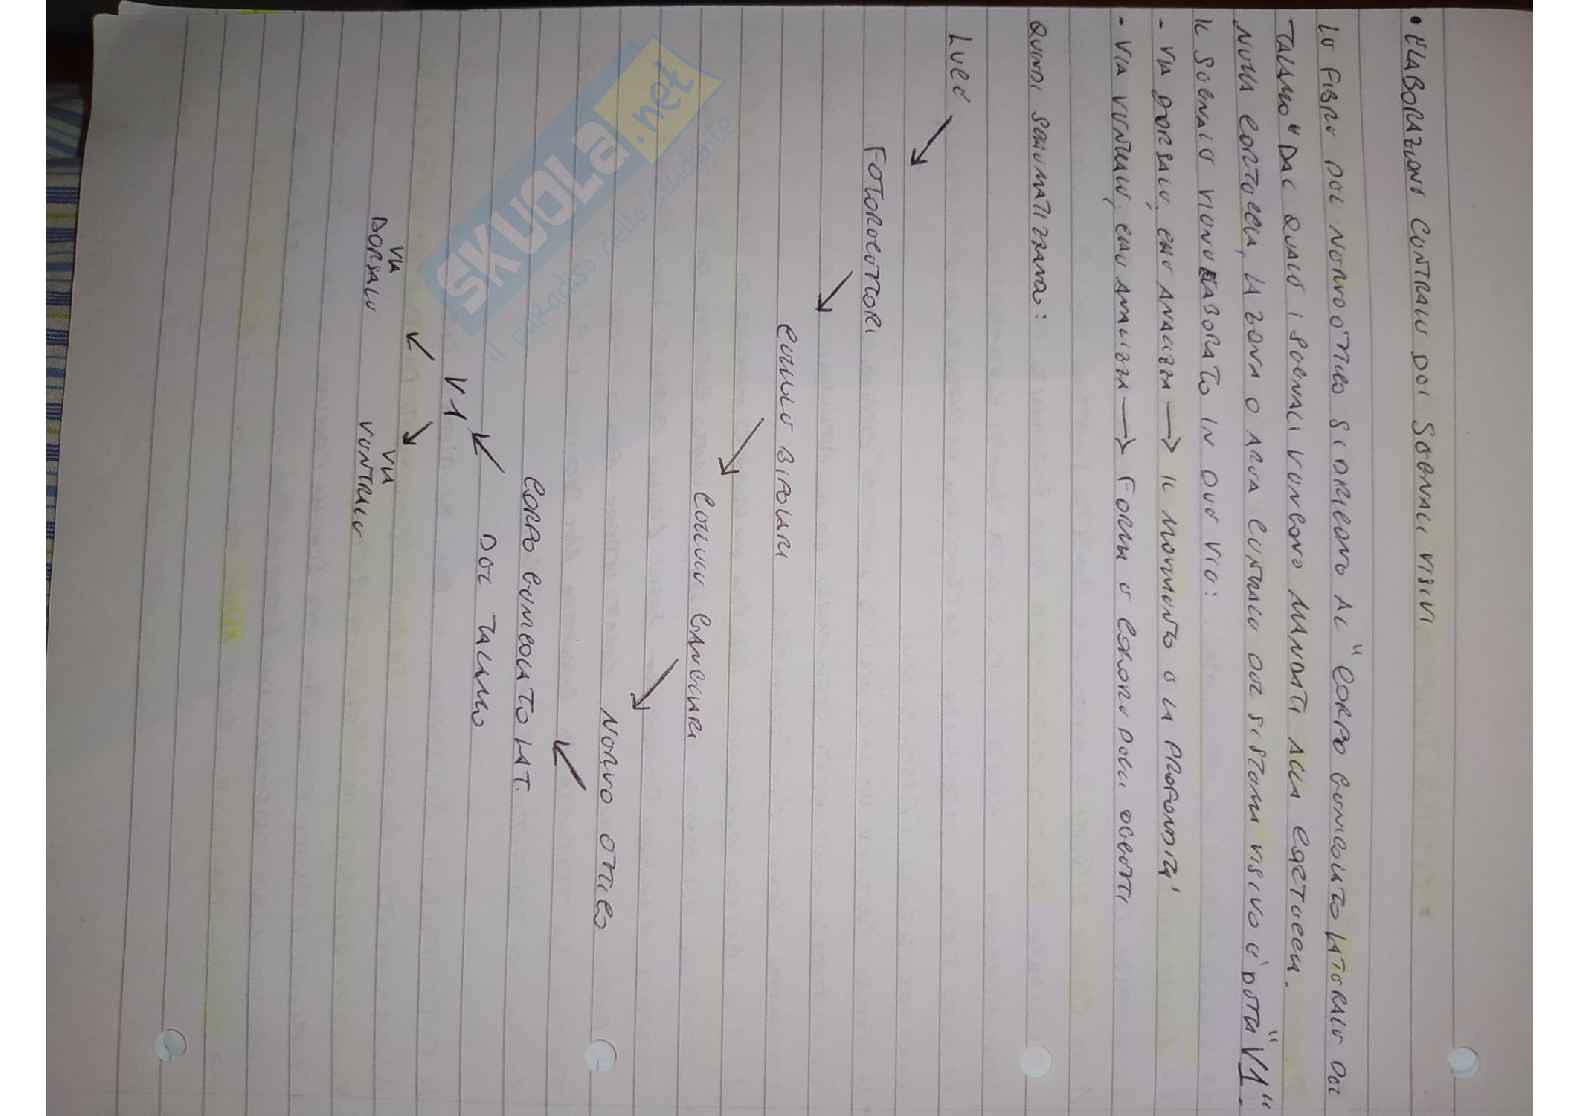 • ELABORAZIONE CENTRALE DEI SEGNALI VISIVI
LE FIBRE DEL NERVO OTTICO SI DIRIGONO AL "CORPO GENICOLATO LATERALE DEL
TALAMO" DAL QUALE I SEGNALI VENGONO MANDATI ALLA CORTECCIA.
NELLA CORTECCIA, LA ZONA O AREA CENTRALE DEL SISTEMA VISIVO E' DETTA "V1".
IL SEGNALE VIENE ELABORATO IN DUE VIE:
- VIA DORSALE, CHE ANALIZZA → IL MOVIMENTO E LA PROFONDITA'
- VIA VENTRALE, CHE ANALIZZA → FORMA E COLORE DEGLI OGGETTI
QUINDI SCHEMATIZZANDO:
LUCE
FOTORECETTORI
CELLULE BIPOLARI
CELLULE GANGLIARI
NERVO OTTICO
CORPO GENICOLATO LAT.
DEL TALAMO
V1
VIA
DORSALE
VIA
VENTRALE
SKUOLA.net
il paradiso dello studente